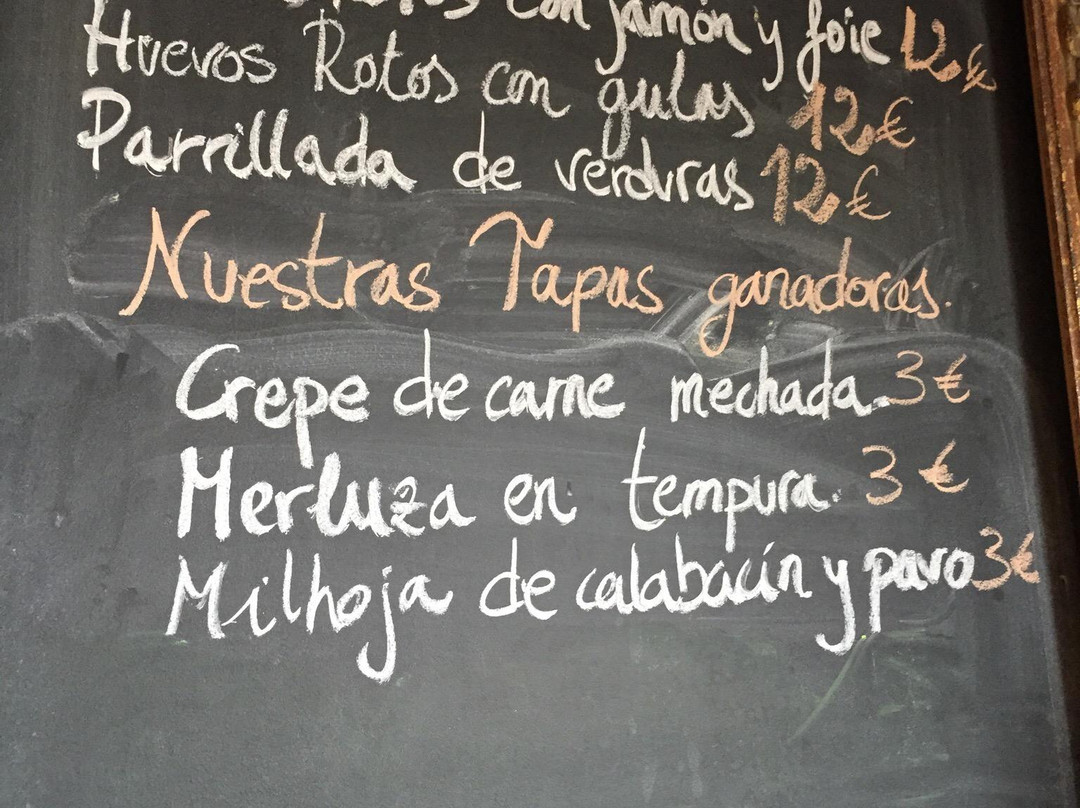 con jamón y foie 12€
Huevos Rotos con gulas 12€
Parrillada de verduras 12€
Nuestras Tapas ganadoras.
Crepe de carne mechada. 3€
Merluza en tempura. 3€
Milhoja de calabacín y pavo 3€